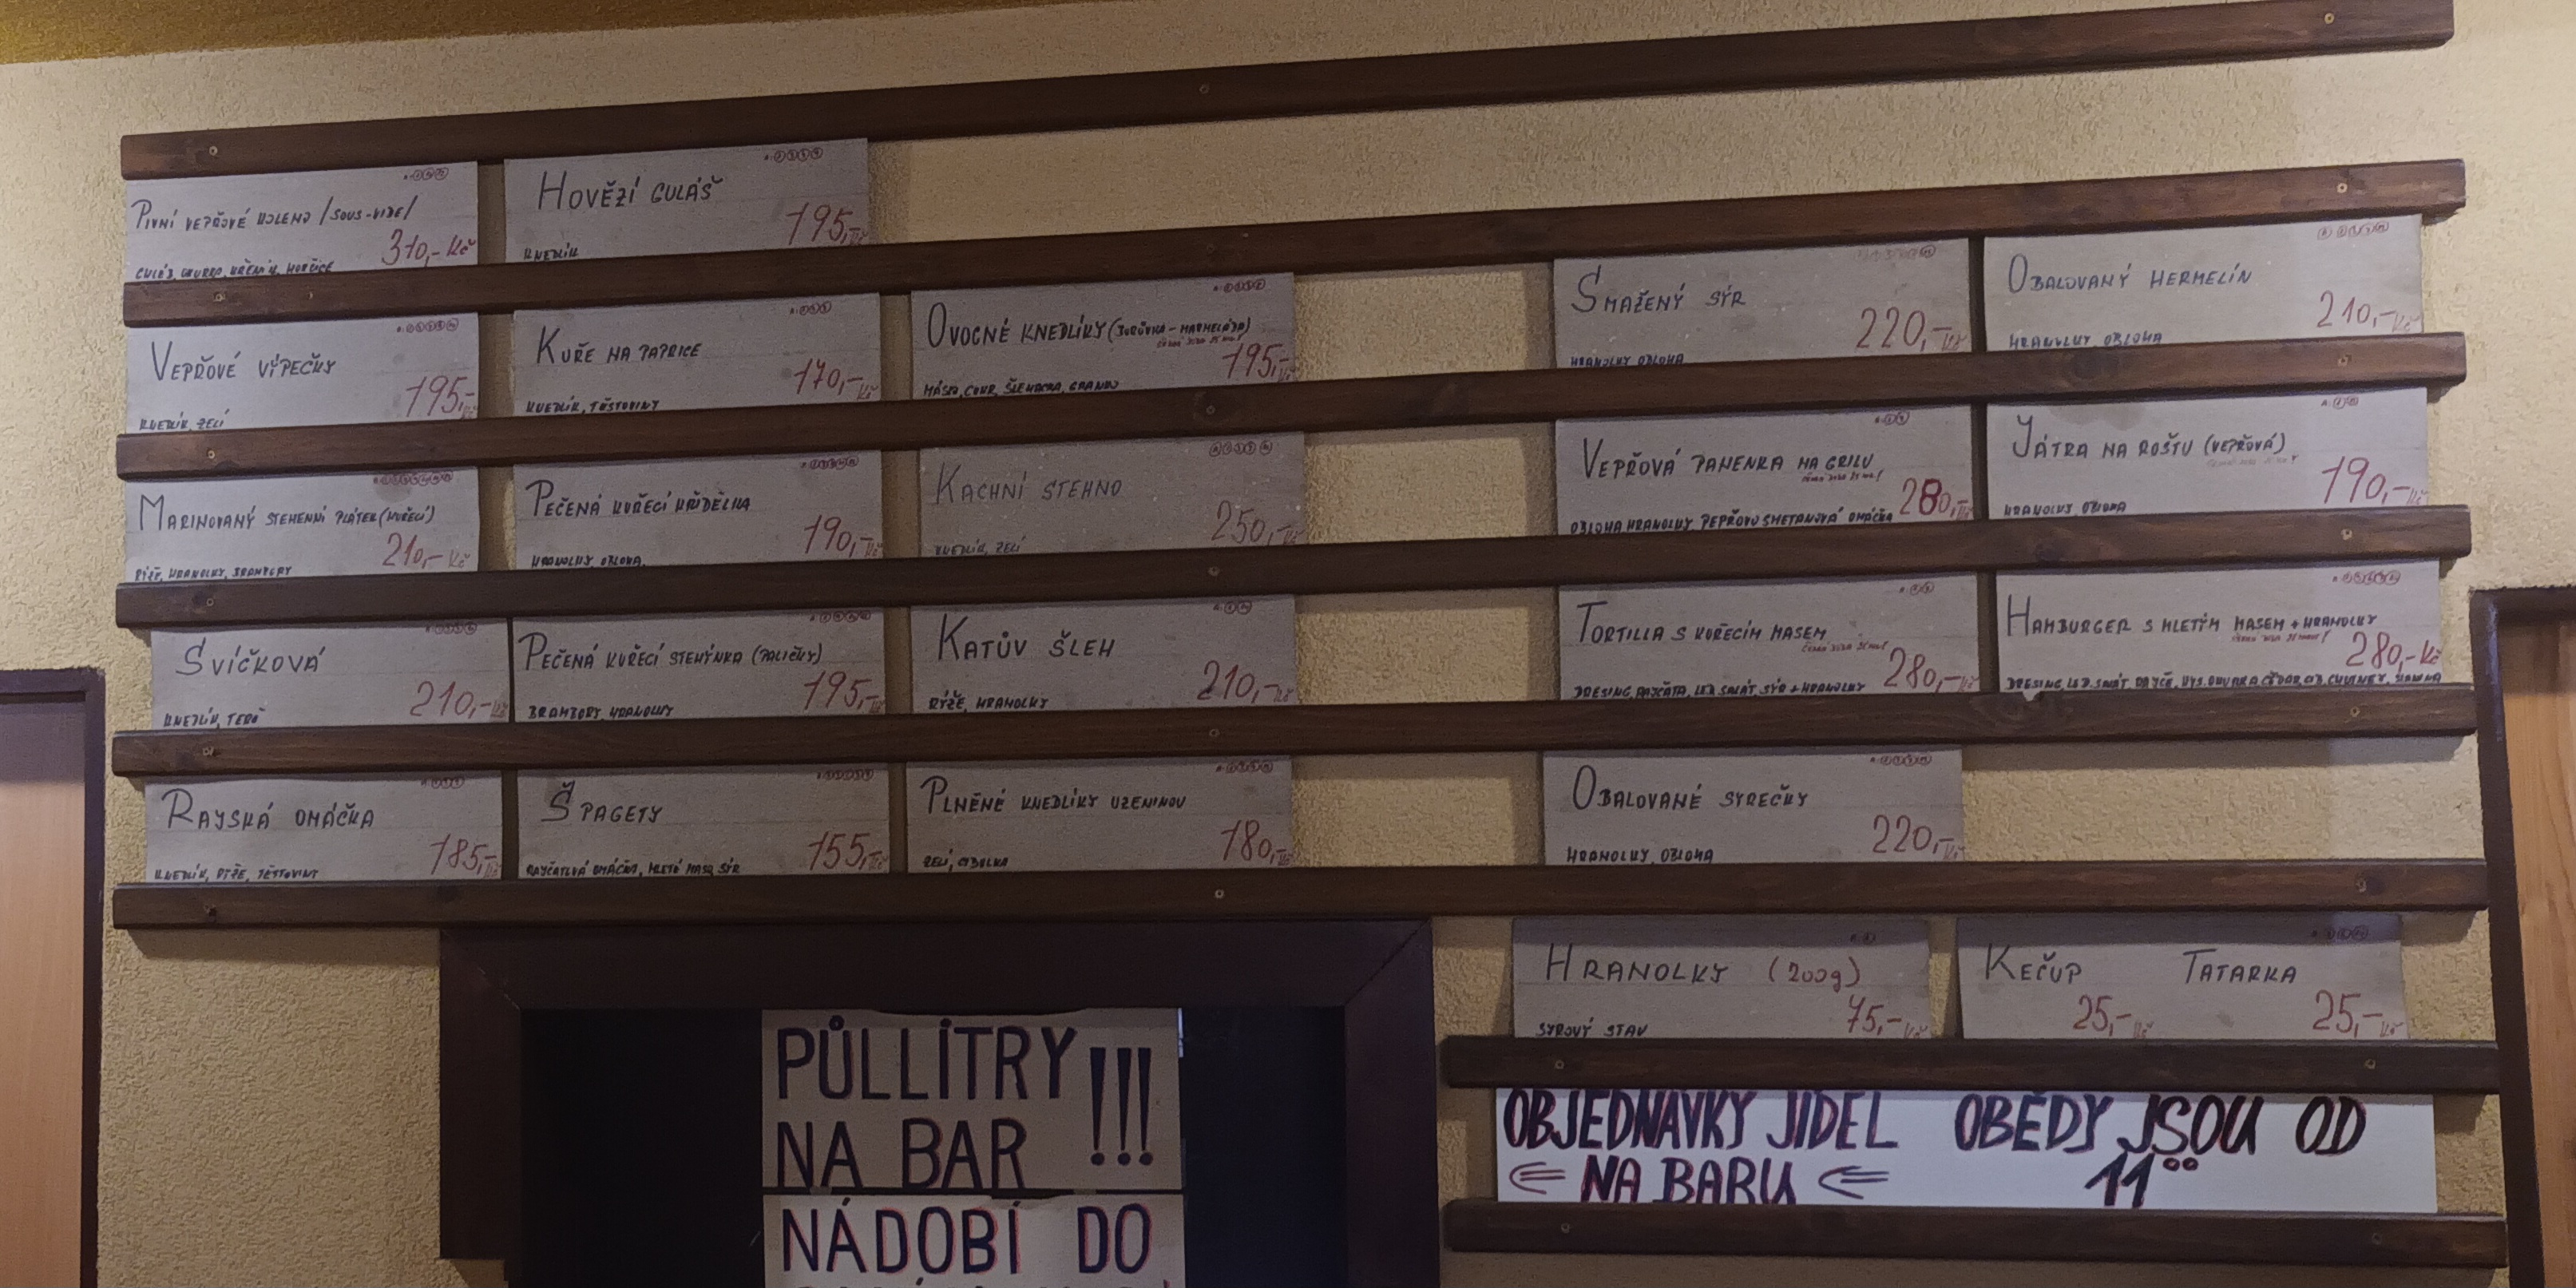 Pivní vepřové koleno /sous-vide/
310,- Kč
Hovězí guláš
195,- Kč
knedlík
Vepřové výpečky
195,-
knedlík, zelí
Kuře na paprice
170,- Kč
knedlík, těstoviny
Ovocné knedlíky (borůvka - marmeláda)
195,- Kč
máslo, cukr, šlehačka, granko
Smažený sýr
220,- Kč
hranolky obloha
Obalovaný hermelín
210,- Kč
hranolky obloha
Marinovaný stehenní plátek (kuřecí)
210,- Kč
rýže, hranolky, brambory
Pečená kuřecí křidélka
190,- Kč
hranolky, obloha
Kachní stehno
250,- Kč
knedlík, zelí
Vepřová panenka na grilu
280,- Kč
obloha hranolky pepřovo smetanová omáčka
Játra na roštu (vepřová)
190,- Kč
hranolky obloha
Svíčková
210,- Kč
knedlík, terč
Pečená kuřecí stehýnka (paličky)
195,- Kč
brambory hranolky
Katův šleh
210,- Kč
rýže, hranolky
Tortilla s kuřecím masem
280,- Kč
dresing, rajčata, led. salát, sýr + hranolky
Hamburger s mletým masem + hranolky
280,- Kč
Rajská omáčka
185,- Kč
knedlík, rýže, těstoviny
Špagety
155,- Kč
rajčatová omáčka, mleté maso, sýr
Plněné knedlíky uzeninou
180,- Kč
zelí, cibulka
Obalované syrečky
220,- Kč
hranolky, obloha
Hranolky (200g)
75,- Kč
syrový stav
Kečup Tatarka
25,- Kč 25,- Kč
PŮLLITRY
NA BAR !!!
NÁDOBÍ DO
OBJEDNÁVKY JÍDEL
⇐ NA BARU ⇐
OBĚDY JSOU OD
11°°